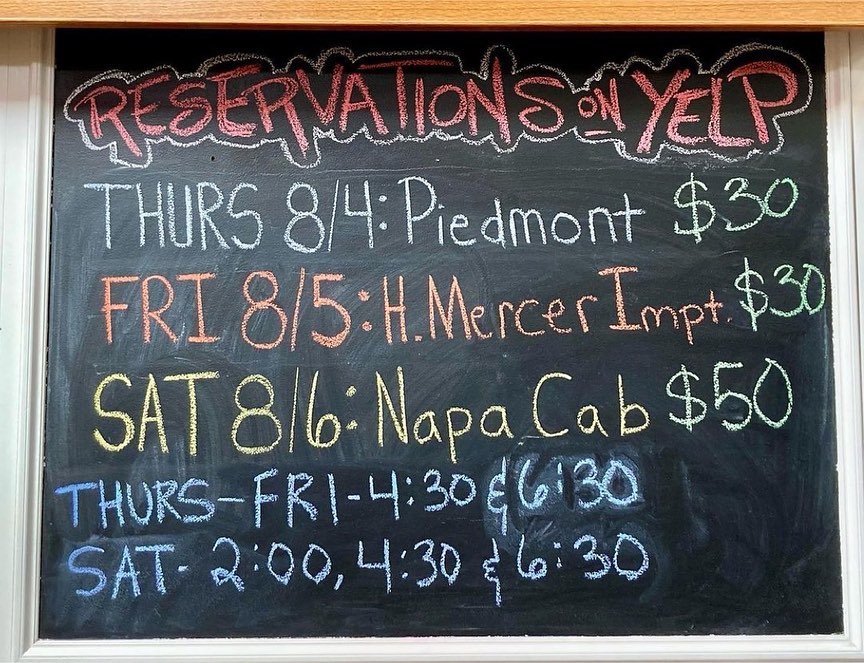 RESERVATIONS ON YELP
THURS 8/4: Piedmont $30
FRI 8/5: H. Mercer Impt. $30
SAT 8/6: Napa Cab $50
THURS-FRI-4:30 & 6:30
SAT- 2:00, 4:30 & 6:30